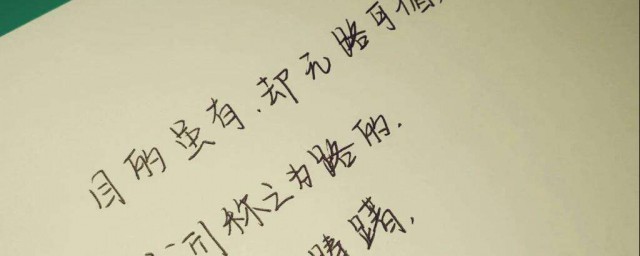 目的虽有.却无路可循,
们称之为路的.
踌躇.